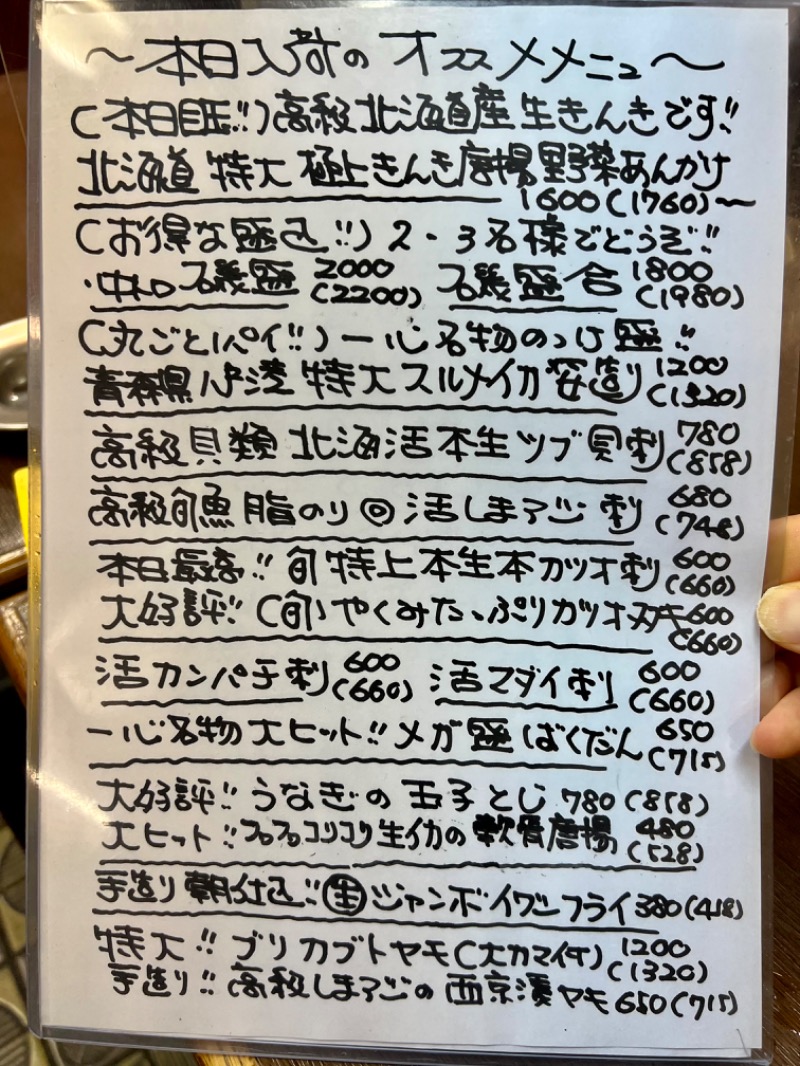 ～本日入荷のオススメメニュー～
(本日目玉!!)高級北海道産生きんきです!!
北海道 特大 極上きんき唐揚野菜あんかけ
1600(1760)～
(お得な盛込!!)2・3名様でどうぞ!!
・中トロ 磯盛 2000 磯盛合 1800
(2200) (1980)
(丸ごと1パイ!!)一心名物のっけ盛!!
青森県八戸湾 特大スルメイカ姿造り 1200
(1320)
高級貝類 北海活本生ツブ貝刺 780
(858)
高級旬魚 脂のり◎活しまアジ刺 680
(748)
本日最高!! 旬特上本生本カツオ刺 600
(660)
大好評!!(旬)やくみたっぷりカツオタタキ600
(660)
活カンパチ刺 600 活マダイ刺 600
(660) (660)
一心名物 大ヒット!! メガ盛ばくだん 650
(715)
大好評!! うなぎの玉子とじ 780(858)
大ヒット!!コロコロコリコリ生イカの軟骨唐揚 480
(528)
手造り 朝仕込!! 生ジャンボイワシフライ380(418)
特大!! ブリカブトヤキ(大カマイチ) 1200
(1320)
手造り!! 高級しまアジの西京漬ヤキ650(715)